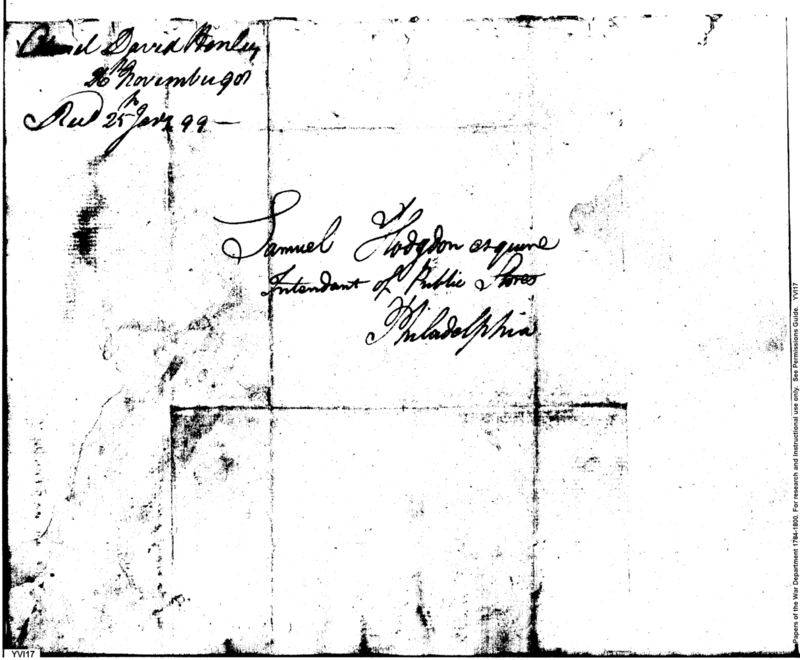 Colonel David Henley
26th November 98
Recd 25th Jany 99 —
Samuel Hodgdon esquire
Intendant of Public Stores
Philadelphia
Papers of the War Department 1784-1800. For research and instructional use only. See Permissions Guide. YVI17
YVI17